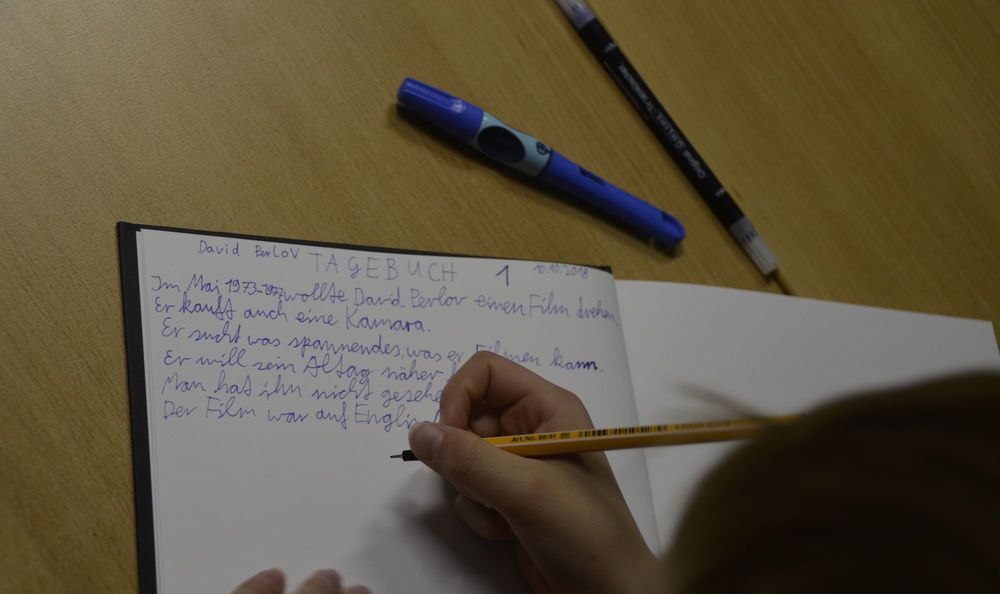 David PerLoV TAGEBUCH 1 10.10.2018
Im Mai 1973-1977 wollte David Perlov einen Film drehen.
Er kauft auch eine Kamara.
Er sucht was spannendes, was er Filmen kann.
Er will sein Altag näher
Man hat ihn nicht gesehe
Der Film war auf Englis
Original
Art. No. 88/41